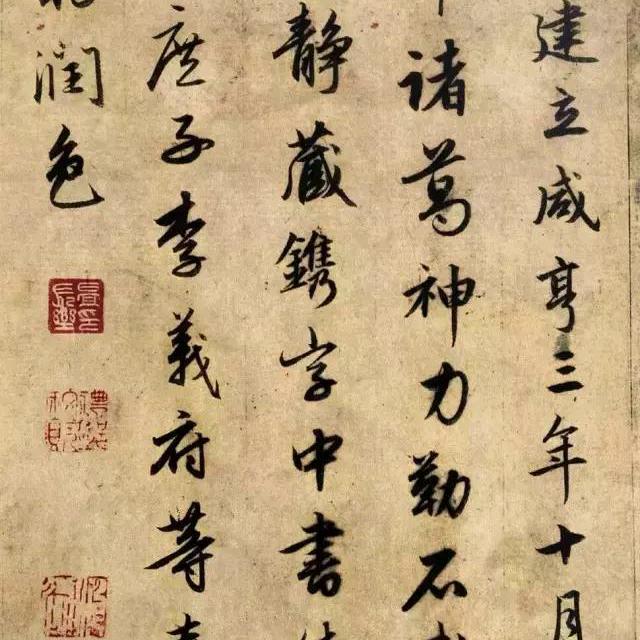 建立咸亨三年十月
諸葛神力勒石
静藏鐫字中書
庶子李義府等
潤色